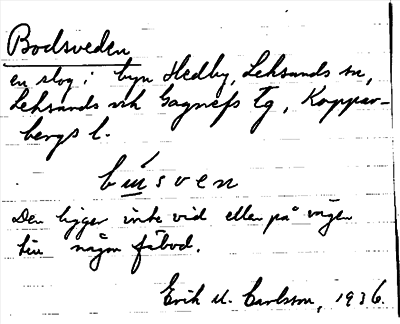 Bodsveden
en slog i byn Hedby, Leksands sn,
Leksands och Gagnefs tg, Koppar-
bergs l.
búsven
Den ligger inte vid eller på vägen
till någon fäbod.
Erik M. Carlsson, 1936.